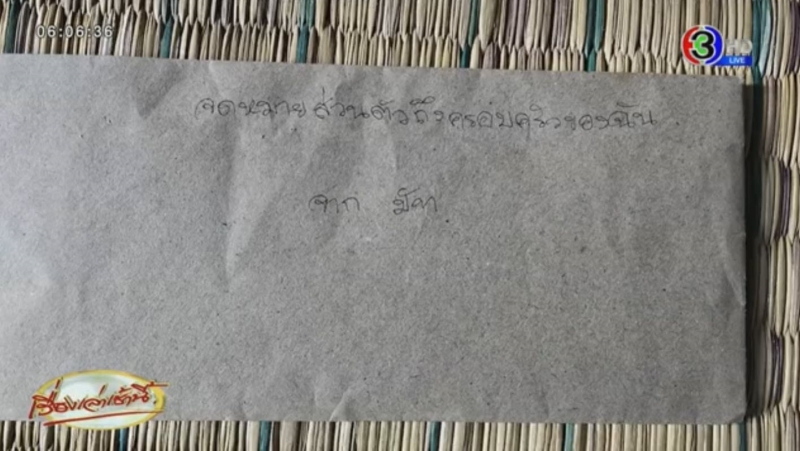 06:06:36
3 HD
LIVE
จดหมายส่วนตัวถึงครอบครัวของฉัน
จาก
เรื่องเล่าเช้านี้